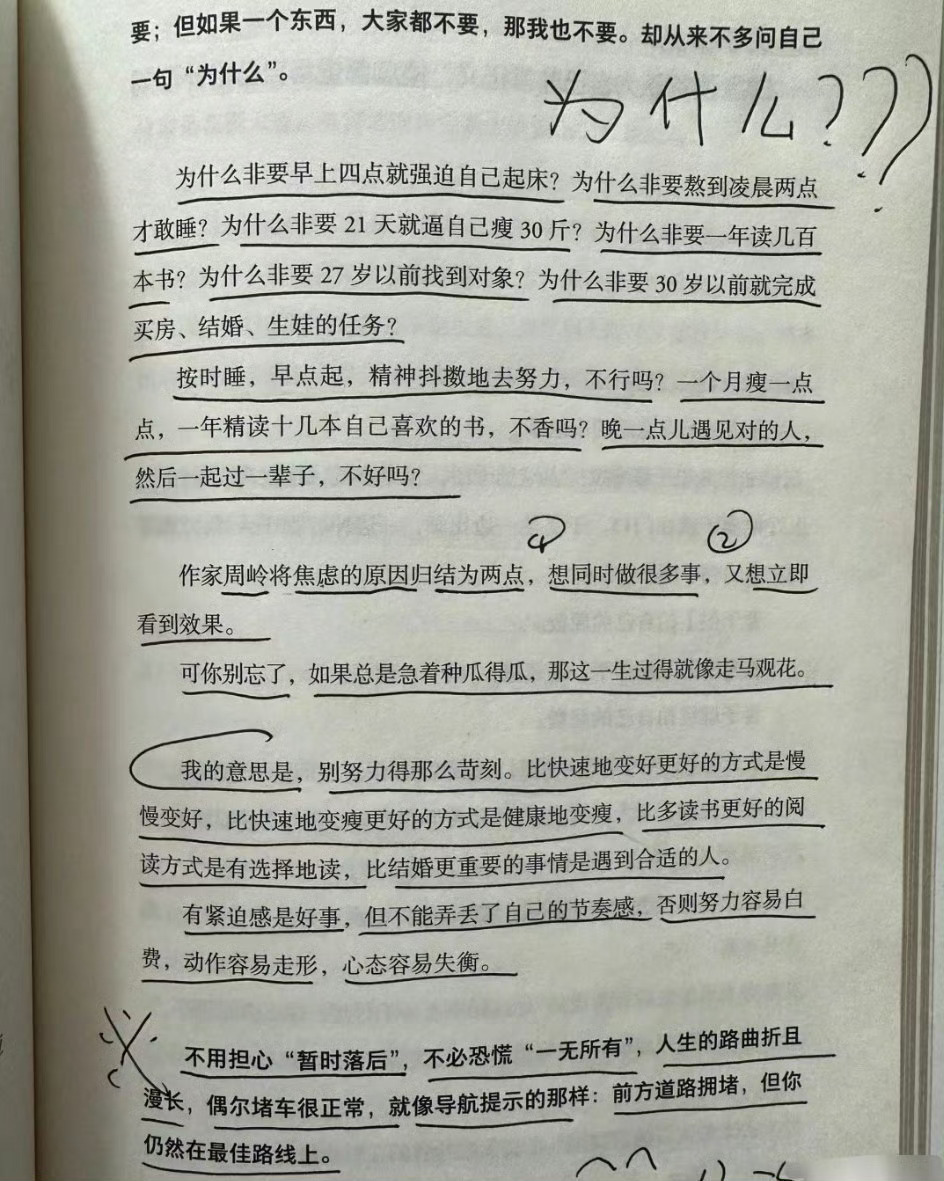 要；但如果一个东西，大家都不要，那我也不要。却从来不多问自己
一句“为什么”。
为什么???
为什么非要早上四点就强迫自己起床？为什么非要熬到凌晨两点
才敢睡？为什么非要 21 天就逼自己瘦 30 斤？为什么非要一年读几百
本书？为什么非要 27 岁以前找到对象？为什么非要 30 岁以前就完成
买房、结婚、生娃的任务？
按时睡，早点起，精神抖擞地去努力，不行吗？一个月瘦一点
点，一年精读十几本自己喜欢的书，不香吗？晚一点儿遇见对的人，
然后一起过一辈子，不好吗？
① ②
作家周岭将焦虑的原因归结为两点，想同时做很多事，又想立即
看到效果。
可你别忘了，如果总是急着种瓜得瓜，那这一生过得就像走马观花。
我的意思是，别努力得那么苛刻。比快速地变好更好的方式是慢
慢变好，比快速地变瘦更好的方式是健康地变瘦，比多读书更好的阅
读方式是有选择地读，比结婚更重要的事情是遇到合适的人。
有紧迫感是好事，但不能弄丢了自己的节奏感，否则努力容易白
费，动作容易走形，心态容易失衡。
不用担心“暂时落后”，不必恐慌“一无所有”，人生的路曲折且
漫长，偶尔堵车很正常，就像导航提示的那样：前方道路拥堵，但你
仍然在最佳路线上。